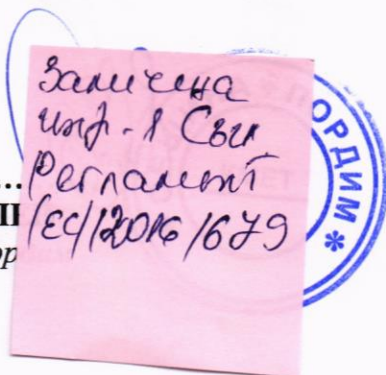 Заличена
инф. - я Съгл.
Регламент
/ЕС/2016/679
ОРДИМ *